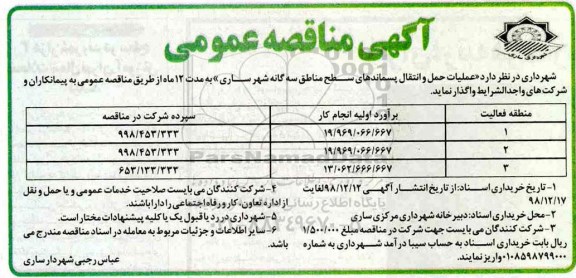 آگهی مناقصه عمومی
شهرداری در نظر دارد «عملیات حمل و انتقال پسماندهای سطح مناطق سه گانه شهر ساری» به مدت ۱۲ماه از طریق مناقصه عمومی به پیمانکاران و
شرکت‌های واجدالشرایط واگذار نماید.
منطقه فعالیت برآورد اولیه انجام کار سپرده شرکت در مناقصه
۱ ۱۹/۹۶۹/۰۶۶/۶۶۷ ۹۹۸/۴۵۳/۳۳۳
۲ ۱۹/۹۶۹/۰۶۶/۶۶۷ ۹۹۸/۴۵۳/۳۳۳
۳ ۱۳/۰۶۲/۶۶۶/۶۶۷ ۶۵۳/۱۳۳/۳۳۳
۱- تاریخ خریداری اسناد: از تاریخ انتشار آگهی ۹۸/۱۲/۱۲ لغایت
۹۸/۱۲/۱۷
۲- محل خریداری اسناد: دبیرخانه شهرداری مرکزی ساری
۳- شرکت کنندگان می بایست جهت شرکت در مناقصه مبلغ ۱/۵۰۰/۰۰۰
ریال بابت خریداری اسناد به حساب سیبا درآمد شهرداری به شماره
۰۱۰۸۵۹۸۷۹۹۰۰۰ واریز نمایند.
۴- شرکت کنندگان می بایست صلاحیت خدمات عمومی و یا حمل و نقل
از اداره تعاون، کار و رفاه اجتماعی را دارا باشند.
۵- شهرداری در رد یا قبول یک یا کلیه پیشنهادات مختار است.
۶- سایر اطلاعات و جزئیات مربوط به معامله در اسناد مناقصه مندرج می
باشد.
عباس رجبی شهردار ساری